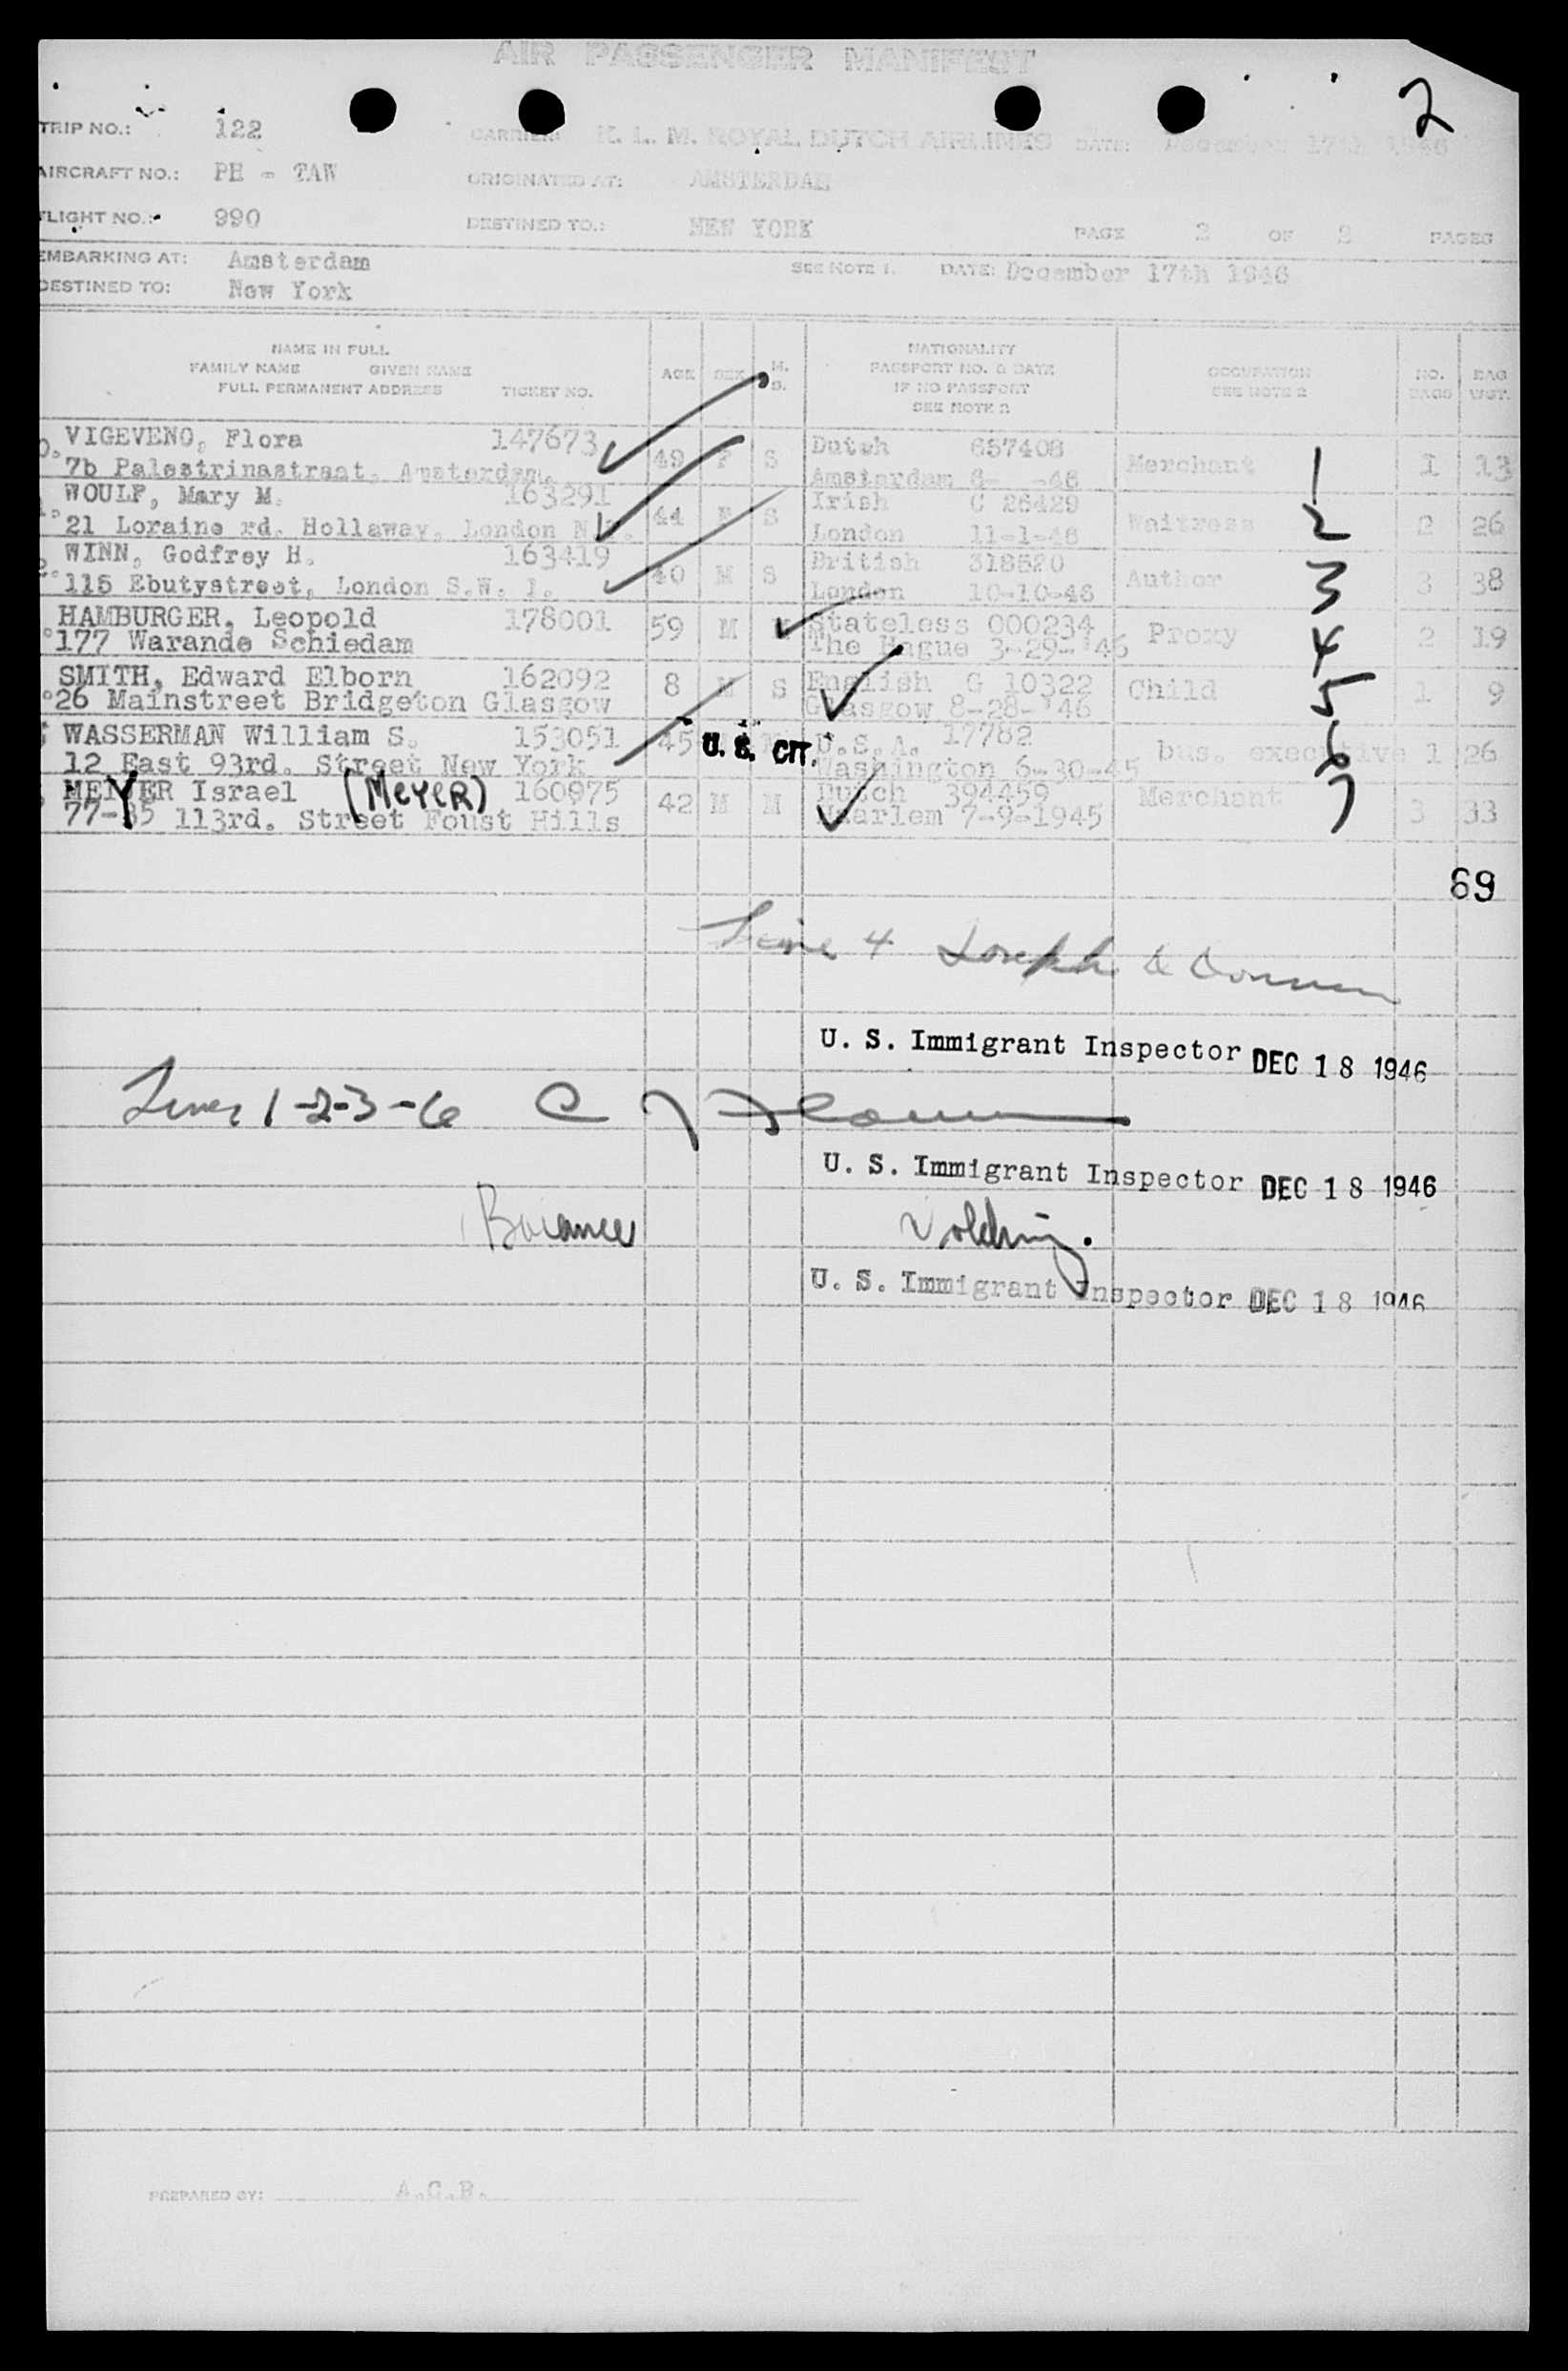 AIR PASSENGER MANIFEST
2
TRIP NO.: 122 CARRIER: K. L. M. ROYAL DUTCH AIRLINES DATE: December 17th 1946
AIRCRAFT NO.: PH - TAW ORIGINATED AT: AMSTERDAM
FLIGHT NO.: 990 DESTINED TO.: NEW YORK PAGE 2 OF 2 PAGES
EMBARKING AT: Amsterdam SEE NOTE 1. DATE: December 17th 1946
DESTINED TO: New York
NAME IN FULL
FAMILY NAME GIVEN NAME
FULL PERMANENT ADDRESS TICKET NO. AGE SEX M. S. NATIONALITY
PASSPORT NO. & DATE
IF NO PASSPORT
SEE NOTE 2 OCCUPATION
SEE NOTE 2 NO. BAGS BAG WGT.
VIGEVENO, Flora 147673 49 F S Dutch 657408 Merchant 1 1 13
7b Palestrinastraat, Amsterdam. Amsterdam 6- -46
WOULF, Mary M. 163291 44 F S Irish C 26429 Waitress 2 2 26
21 Loraine rd. Hollaway, London N London 11-1-46
WINN, Godfrey H. 163419 40 M S British 318520 Author 3 3 38
115 Ebutystreet, London S.W. 1. London 10-10-46
HAMBURGER, Leopold 178001 59 M Stateless 000234 Proxy 4 2 19
177 Warande Schiedam The Hague 3-29-'46
SMITH, Edward Elborn 162092 8 M S English G 10322 Child 5 1 9
26 Mainstreet Bridgeton Glasgow Glasgow 8-28-'46
WASSERMAN William S. 153051 45 U. S. CIT. U.S.A. 17782 bus. executive 6 1 26
12 East 93rd. Street New York Washington 6-30-45
MEYER Israel (MEYER) 160975 42 M M Dutch 394459 Merchant 7 3 33
77-35 113rd. Street Foust Hills Haarlem 7-9-1945
69
Line 4 Joseph
U. S. Immigrant Inspector DEC 18 1946
Lines 1-2-3-6 C
U. S. Immigrant Inspector DEC 18 1946
Balance
U. S. Immigrant Inspector DEC 18 1946
PREPARED BY: A.C.B.